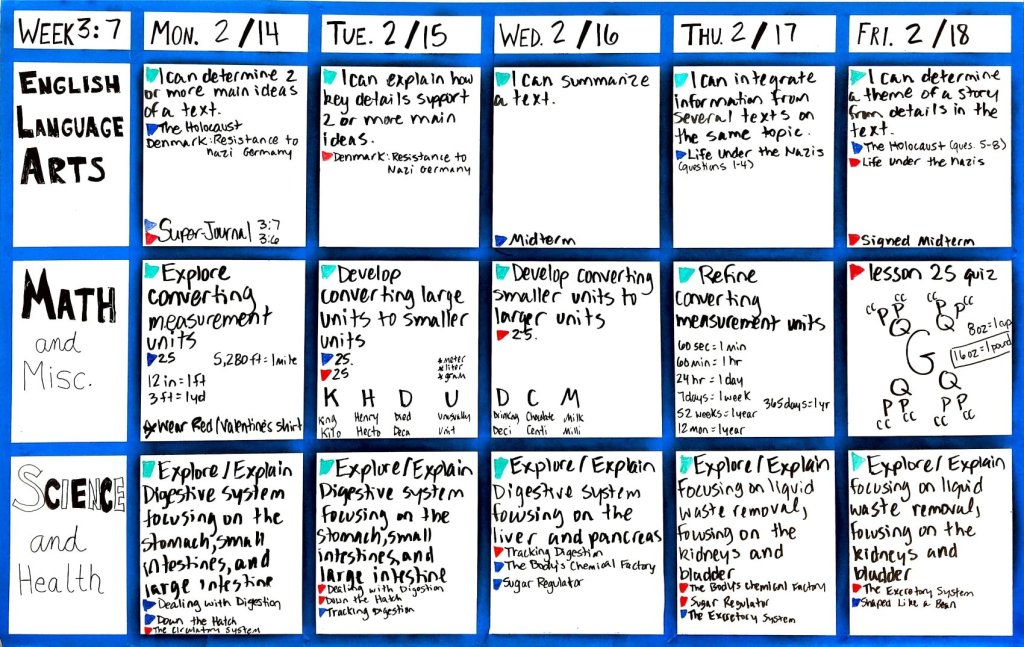 WEEK 3:7
MON. 2/14
TUE. 2/15
WED. 2/16
THU. 2/17
FRI. 2/18
ENGLISH
LANGUAGE
ARTS
I can determine 2
or more main ideas
of a text.
The Holocaust
Denmark: Resistance to
Nazi Germany
Super-Journal 3:7
3:6
I can explain how
key details support
2 or more main
ideas.
Denmark: Resistance to
Nazi Germany
I can summarize
a text.
Midterm
I can integrate
information from
several texts on
the same topic.
Life Under the Nazis
(questions 1-4)
I can determine
a theme of a story
from details in the
text.
The Holocaust (ques. 5-8)
Life under the Nazis
Signed Midterm
MATH
and
Misc.
Explore
converting
measurement
units
25 5,280 ft = 1 mile
12 in = 1 ft
3 ft = 1 yd
Wear Red/Valentine's shirt
Develop
converting large
units to smaller
units
25.
25
*meter
*liter
*gram
K H D U
King Henry Died Unusually
Kilo Hecto Deca Unit
Develop converting
smaller units to
larger units
25.
D C M
Drinking Chocolate Milk
Deci Centi Milli
Refine
converting
measurement units
60 sec = 1 min
60 min = 1 hr
24 hr = 1 day
7 days = 1 week
365 days = 1 yr
52 weeks = 1 year
12 mon = 1 year
lesson 25 quiz
cc cc cc cc
P P P P
Q Q
8 oz = 1 cup
G
16 oz = 1 pound
Q Q
P P P P
cc cc cc cc
SCIENCE
and
Health
Explore/Explain
Digestive system
focusing on the
stomach, small
intestines, and
large intestine
Dealing with Digestion
Down the Hatch
The Circulatory System
Explore/Explain
Digestive system
focusing on the
stomach, small
intestines, and
large intestine
Dealing with Digestion
Down the Hatch
Tracking Digestion
Explore/Explain
Digestive system
focusing on the
liver and pancreas
Tracking Digestion
The Body's Chemical Factory
Sugar Regulator
Explore/Explain
focusing on liquid
waste removal,
focusing on the
kidneys and
bladder
The Body's Chemical Factory
Sugar Regulator
The Excretory System
Explore/Explain
focusing on liquid
waste removal,
focusing on the
kidneys and
bladder
The Excretory System
Shaped Like a Bean